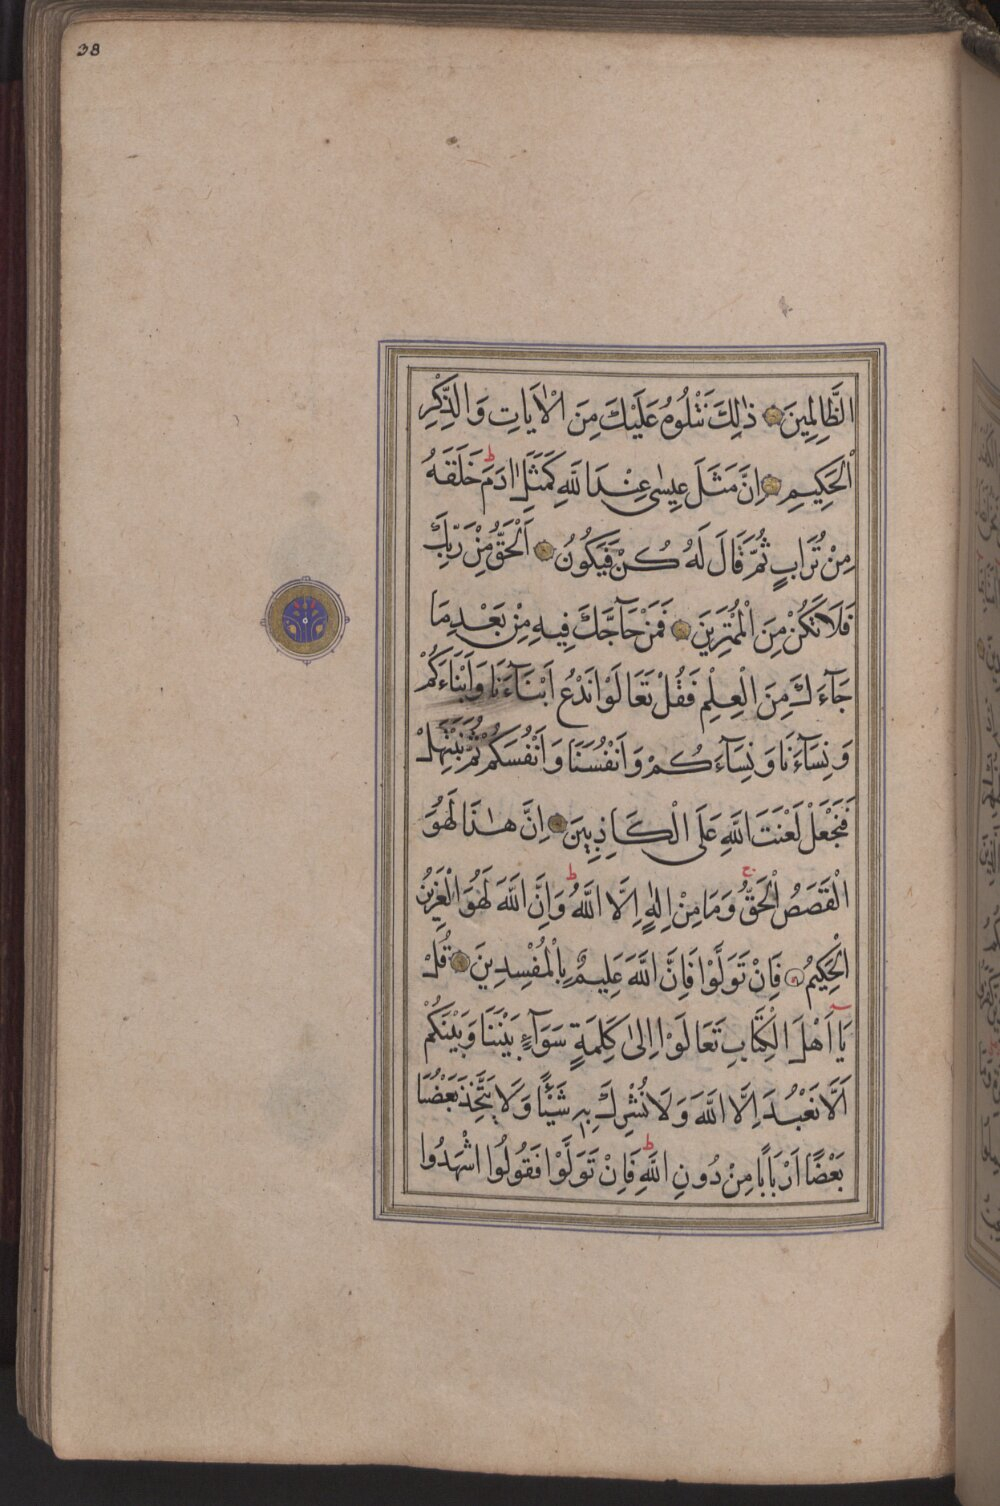 38
الظَّالِمِينَ ذٰلِكَ نَتْلُوهُ عَلَيْكَ مِنَ الْاٰيَاتِ وَالذِّكْرِ
الْحَكِيمِ اِنَّ مَثَلَ عِيسٰى عِنْدَ اللّٰهِ كَمَثَلِ اٰدَمَ ط خَلَقَهُ
مِنْ تُرَابٍ ثُمَّ قَالَ لَهُ كُنْ فَيَكُونُ اَلْحَقُّ مِنْ رَبِّكَ
فَلَا تَكُنْ مِنَ الْمُمْتَرِينَ فَمَنْ حَآجَّكَ فِيهِ مِنْ بَعْدِ مَا
جَآءَكَ مِنَ الْعِلْمِ فَقُلْ تَعَالَوْا نَدْعُ اَبْنَآءَنَا وَاَبْنَاءَكُمْ
وَنِسَآءَنَا وَنِسَآءَكُمْ وَاَنْفُسَنَا وَاَنْفُسَكُمْ ثُمَّ نَبْتَهِلْ
فَنَجْعَلْ لَعْنَتَ اللّٰهِ عَلَى الْكَاذِبِينَ اِنَّ هٰذَا لَهُوَ
الْقَصَصُ الْحَقُّ ج وَمَا مِنْ اِلٰهٍ اِلَّا اللّٰهُ ط وَاِنَّ اللّٰهَ لَهُوَ الْعَزِيزُ
الْحَكِيمُ فَاِنْ تَوَلَّوْا فَاِنَّ اللّٰهَ عَلِيمٌ بِالْمُفْسِدِينَ قُلْ
يَآ اَهْلَ الْكِتَابِ تَعَالَوْا اِلٰى كَلِمَةٍ سَوَآءٍ بَيْنَنَا وَبَيْنَكُمْ
اَلَّا نَعْبُدَ اِلَّا اللّٰهَ وَلَا نُشْرِكَ بِهِ شَيْئًا وَلَا يَتَّخِذَ بَعْضُنَا
بَعْضًا اَرْبَابًا مِنْ دُونِ اللّٰهِ ط فَاِنْ تَوَلَّوْا فَقُولُوا اشْهَدُوا